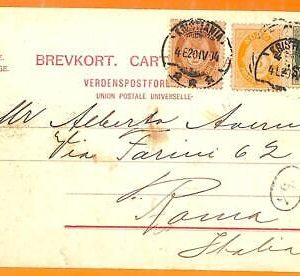 BREVKORT. CART
VERDENSPOSTFORE
UNION POSTALE UNIVERSELLE
KRISTIANIA
4 E 20 IV 94
Mr Alberto
Via Farini 62
Roma
Italia